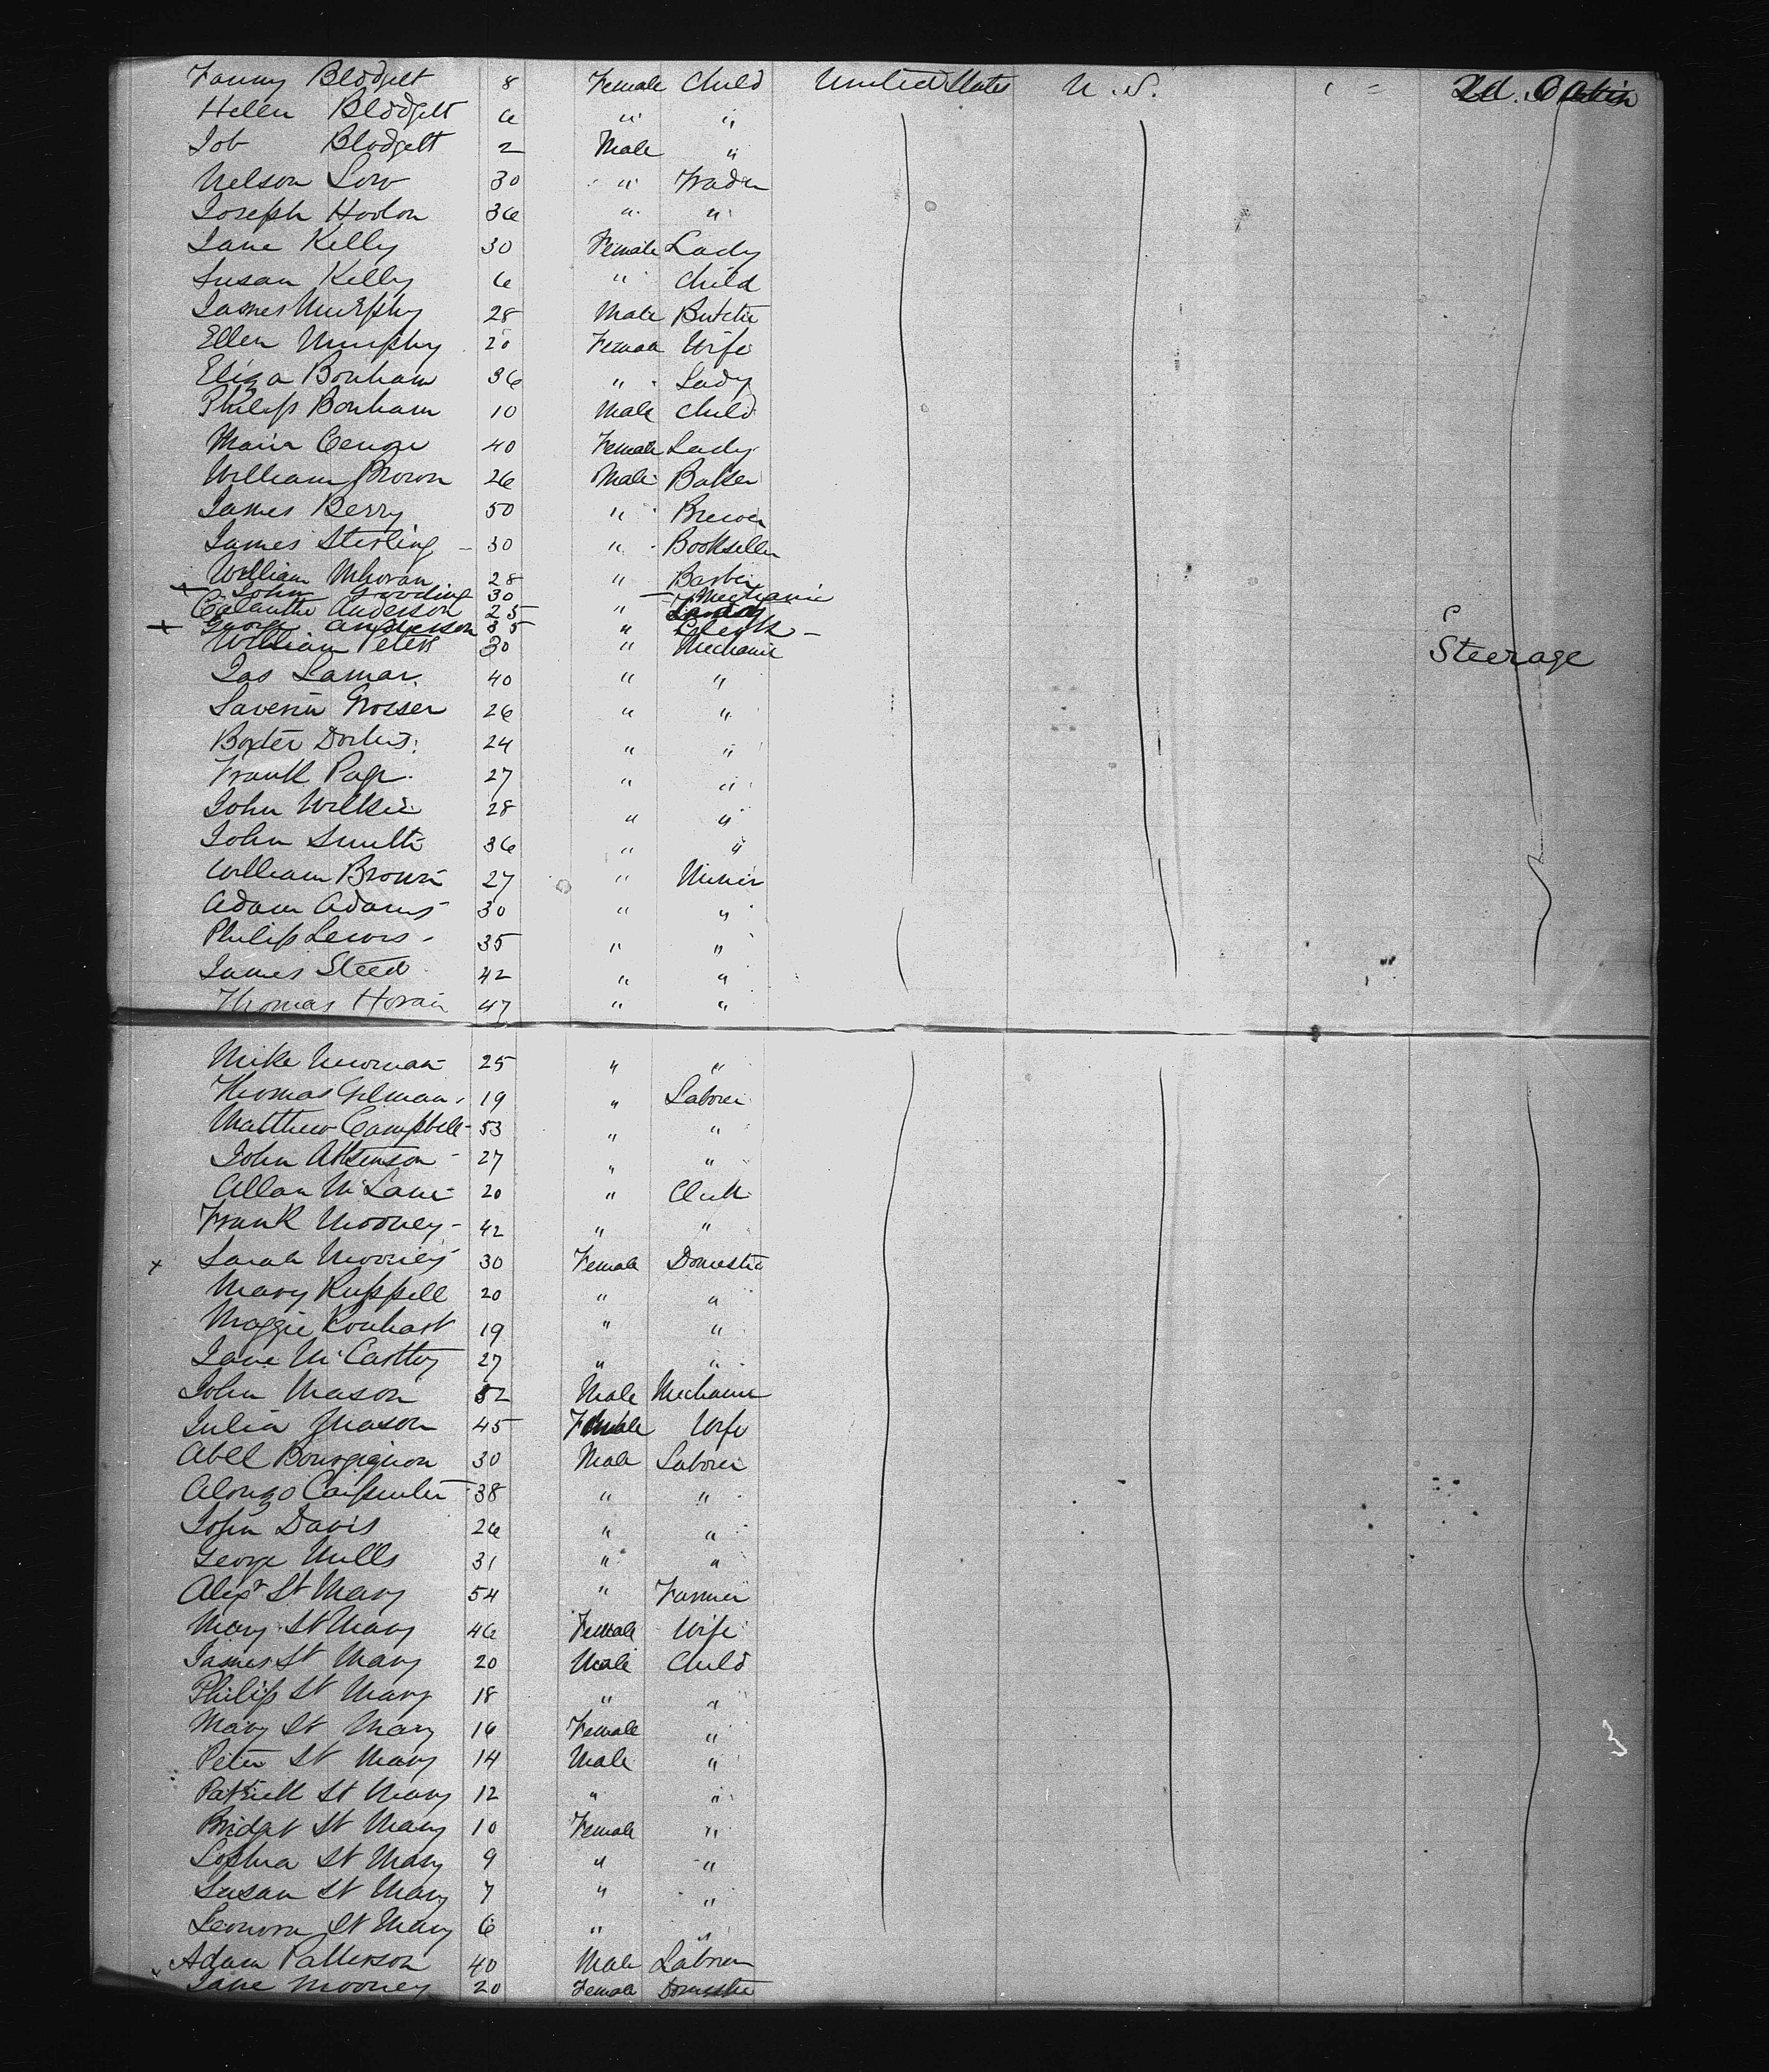 Fanny Blodgett 8 Female Child United States U.S. 2d. Cabin
Helen Blodgett 6 " "
Job Blodgett 2 Male "
Nelson Low 30 " Trader
Joseph 36 " "
Jane Kelly 30 Female Lady
Susan Kelly 6 " Child
James Murphy 28 Male Butcher
Ellen Murphy 20 Female Wife
Eliza Bonham 36 " Lady
Philip Bonham 10 Male Child
Maria 40 Female Lady
William Brown 26 Male Baker
James Berry 50 " Brewer
James Sterling 30 " Bookseller
William 28 " Barber
x John Gooding 30 - Mechanic
Calanthe Anderson 25 "
x George Anderson 35 " Clerk -
William Peters 30 " Mechanic
Steerage
Jas Lamar. 40 " "
Grosser 26 " "
24 " "
Frank Page 27 " "
John Wilkie 28 " "
John Smith 36 " "
William Brown 27 " Miner
Adam Adams 30 " "
Philip Lewis - 35 " "
James Steed 42 " "
Thomas Horan 47 " "
Mike 25 " "
Thomas Gilman 19 " Laborer
Matthew Campbell - 53 " "
John Atkenson - 27 " "
Allan McLane - 20 " Clerk
Frank Mooney - 42 " "
x Sarah Mooney 30 Female Domestic
Mary Ruppell 20 " "
Maggie 19 " "
Jane McCarthy 27 " "
John Mason 52 Male Mechanic
Julia Mason 45 Female Wife
Abell Bourgignon 30 Male Laborer
Alonzo Carpenter - 38 " "
John Davis 26 " "
George Mills 31 " "
Alexr St Mary 54 " Farmer
Mary St Mary 46 Female Wife
James St Mary 20 Male Child
Philip St Mary 18 " "
Mary St Mary 16 Female "
Peter St Mary 14 Male "
Patrick St Mary 12 " "
Bridget St Mary 10 Female "
Sophia St Mary 9 " "
Susan St Mary 7 " "
Leonora St Mary 6 " "
x Adam Patterson 40 Male Laborer
Jane Mooney 20 Female Domestic